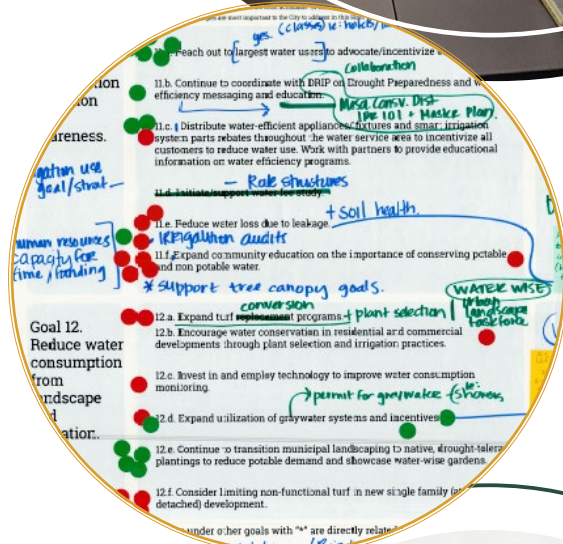 are most important to the City to address in this
yes. (classes) ie: hotels/
Reach out to largest water users to advocate/incentivize
Collaboration
11.b. Continue to coordinate with DRIP on Drought Preparedness and
efficiency messaging and education.
Mesa Consv. Dist
IPR 101 + Master Plan.
areness.
11.c. Distribute water-efficient appliances/fixtures and smart irrigation
system parts rebates throughout the water service area to incentivize all
customers to reduce water use. Work with partners to provide educational
information on water efficiency programs.
gation use
goal/strat
- Rate structures
11.d. Initiate/support water fee study.
+ soil health.
11.e. Reduce water loss due to leakage.
human resources
capacity for
time, funding
- IRRigation audits
11.f. Expand community education on the importance of conserving potable
and non potable water.
* support tree canopy goals.
WATER WISE
urban
landscape
taskforce
conversion
12.a. Expand turf replacement programs. + plant selection
Goal 12.
Reduce water
consumption
from
ndscape
d
ation.
12.b. Encourage water conservation in residential and commercial
developments through plant selection and irrigation practices.
12.c. Invest in and employ technology to improve water consumption
monitoring.
permit for graywater ie: showers
12.d. Expand utilization of graywater systems and incentives
12.e. Continue to transition municipal landscaping to native, drought-tolera
plantings to reduce potable demand and showcase water-wise gardens.
12.f. Consider limiting non-functional turf in new single family
detached) development.
under other goals with "*" are directly relate